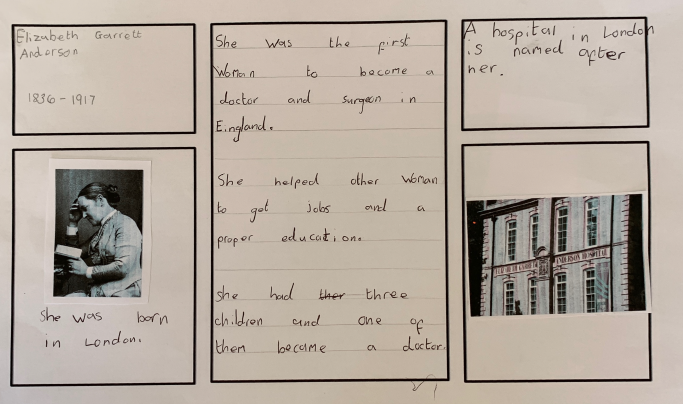 Elizabeth Garrett
Anderson
1836 - 1917
She was born
in London.
She Was the first
Woman to become a
doctor and surgeon in
Eingland.
She helped other Woman
to get jobs and a
proper education.
she had ther three
children and one of
them became a doctor.
A hospital in London
is named after
her.
ELIZABETH GARRETT ANDERSON HOSPITAL